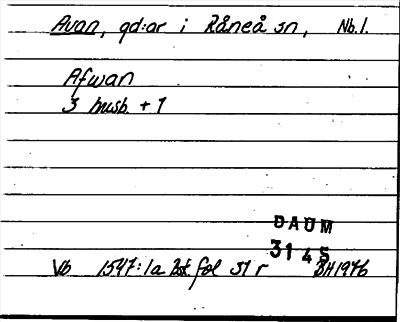 Avan, gd:ar i Råneå sn, Nb.l.
Afwan
3 husb. + 1
DAUM
3145
Vb 1547:1a Bst. fol 51 r BH1976